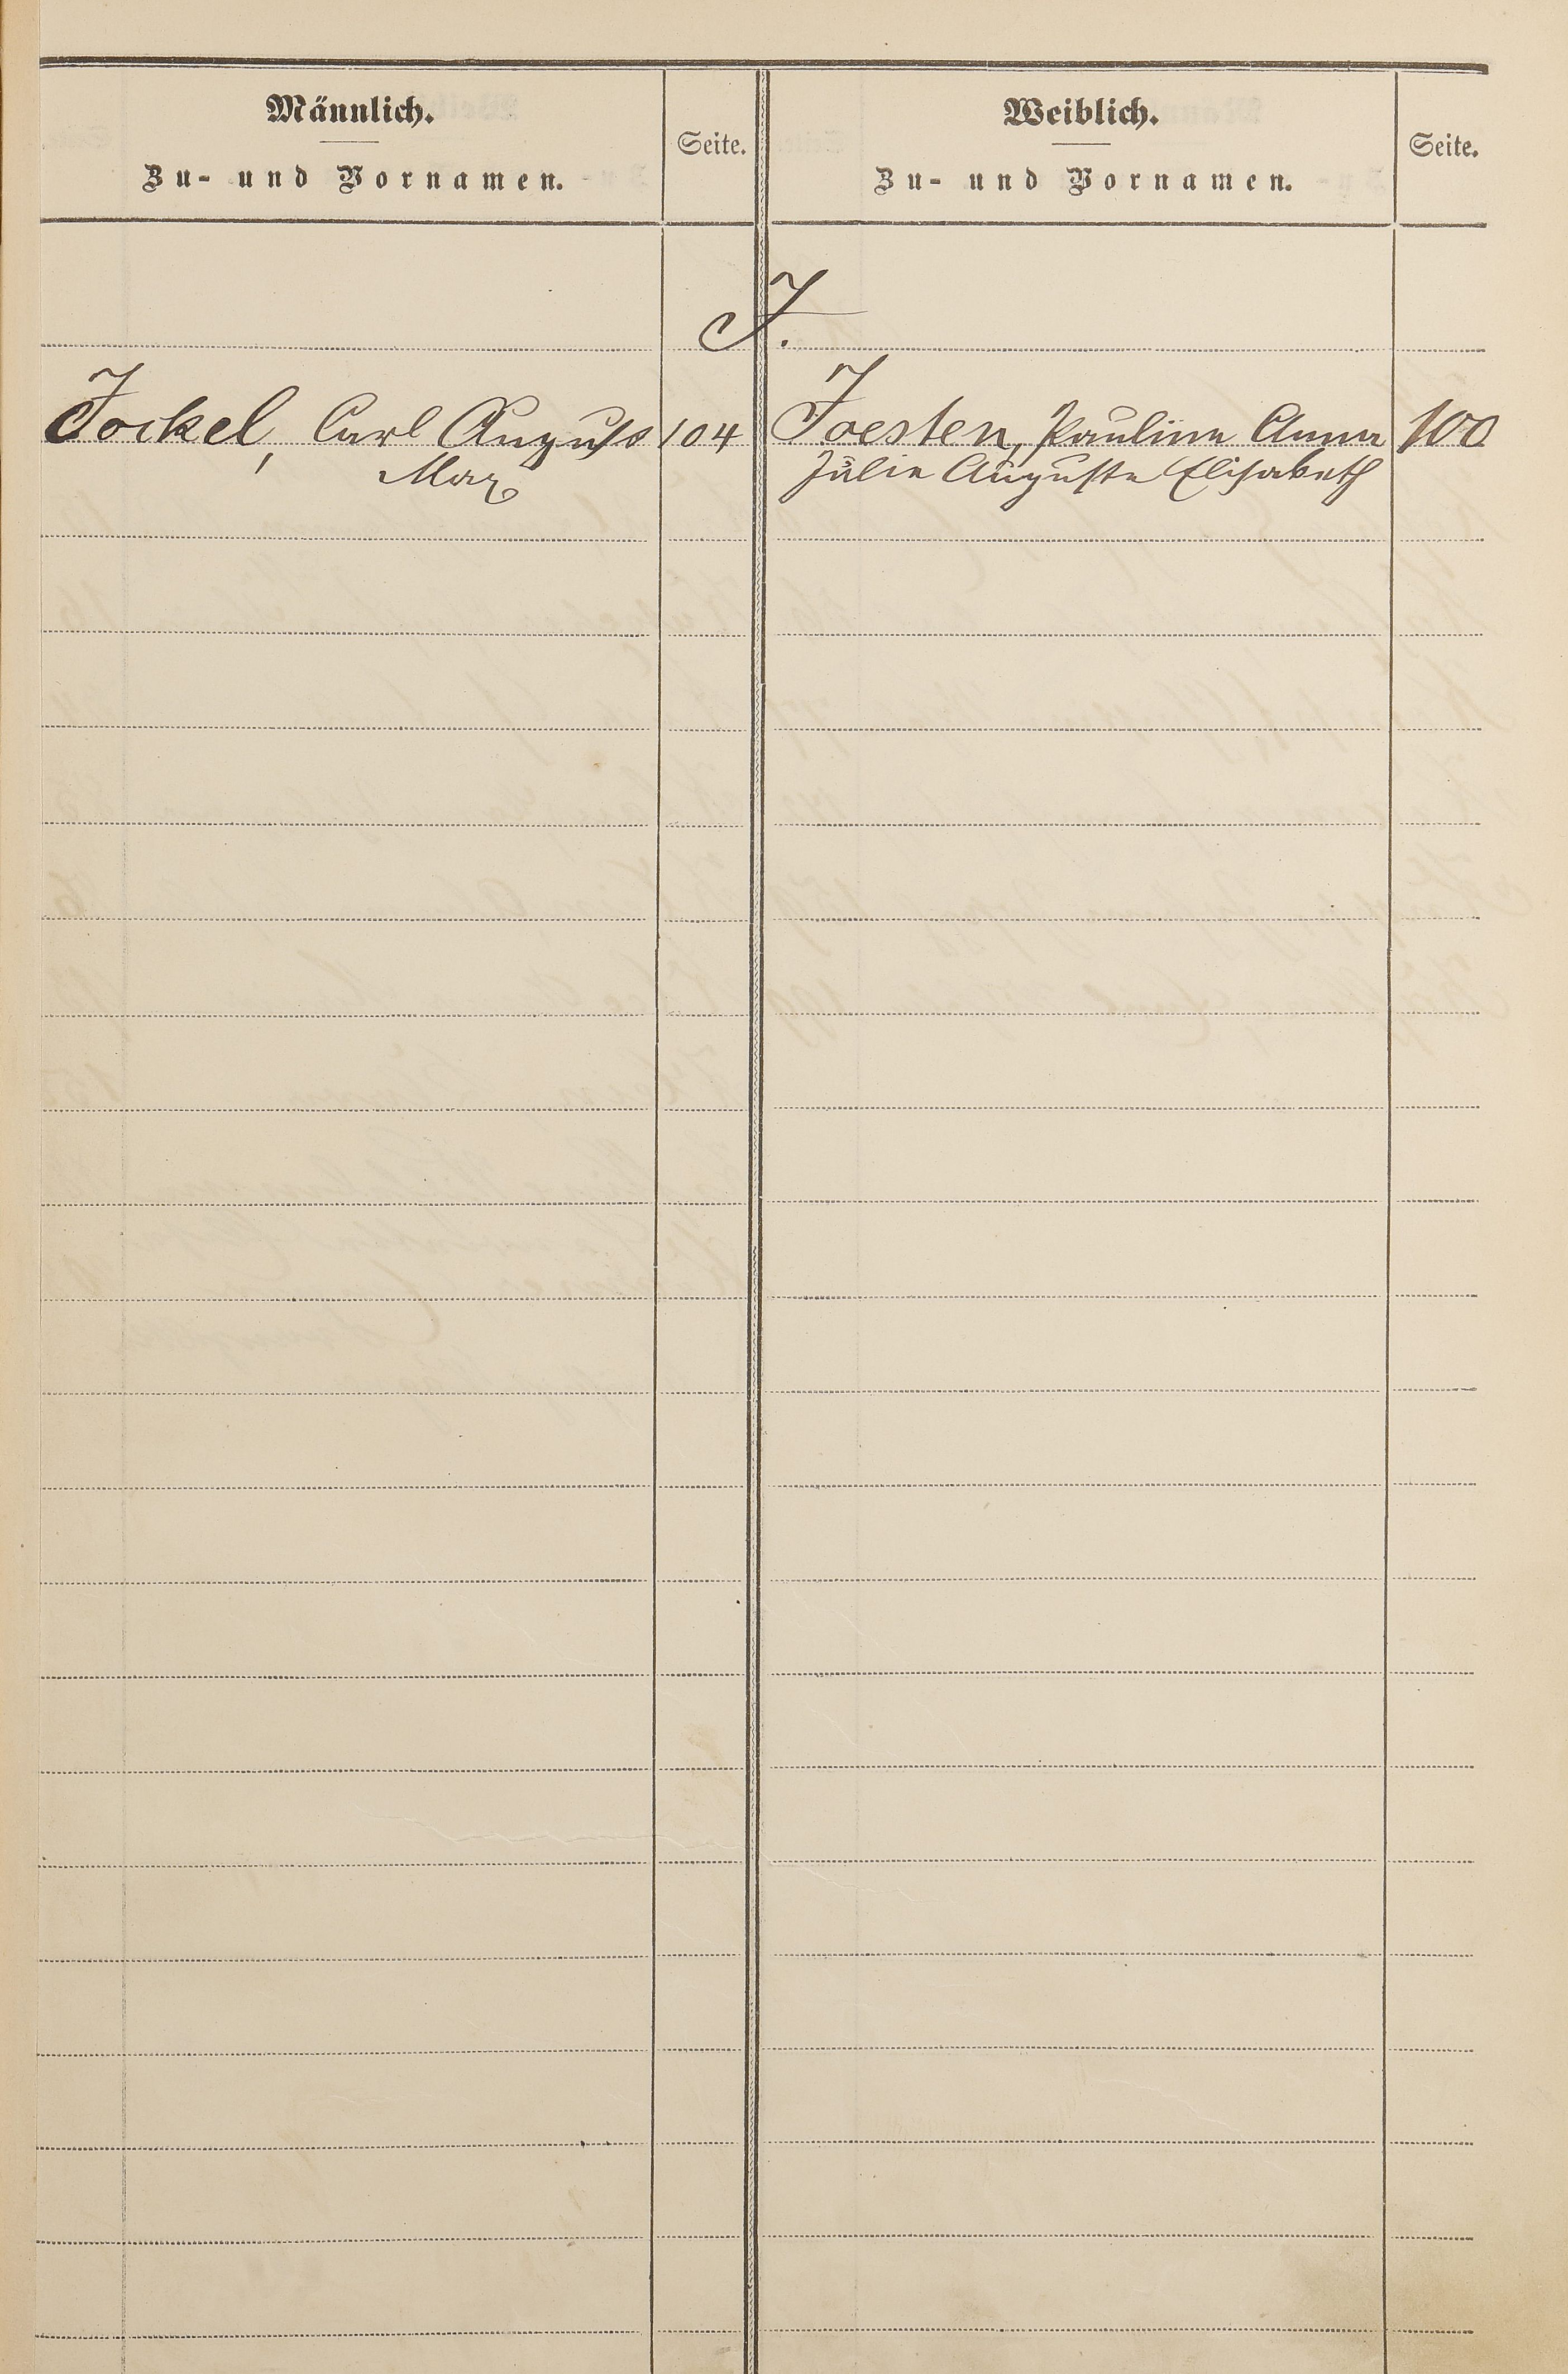 Männlich.
Zu- und Vornamen.
Seite.
Weiblich.
Zu- und Vornamen.
Seite.
J.
Jockel, Carl August 104
Max
Joesten, Pauline Anna 100
Julie Auguste Elisabeth